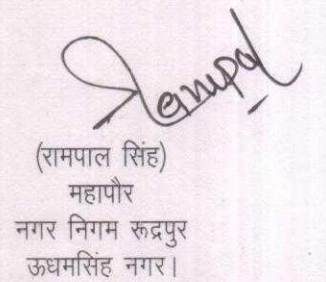 Rampal
(रामपाल सिंह)
महापौर
नगर निगम रूद्रपुर
ऊधमसिंह नगर।